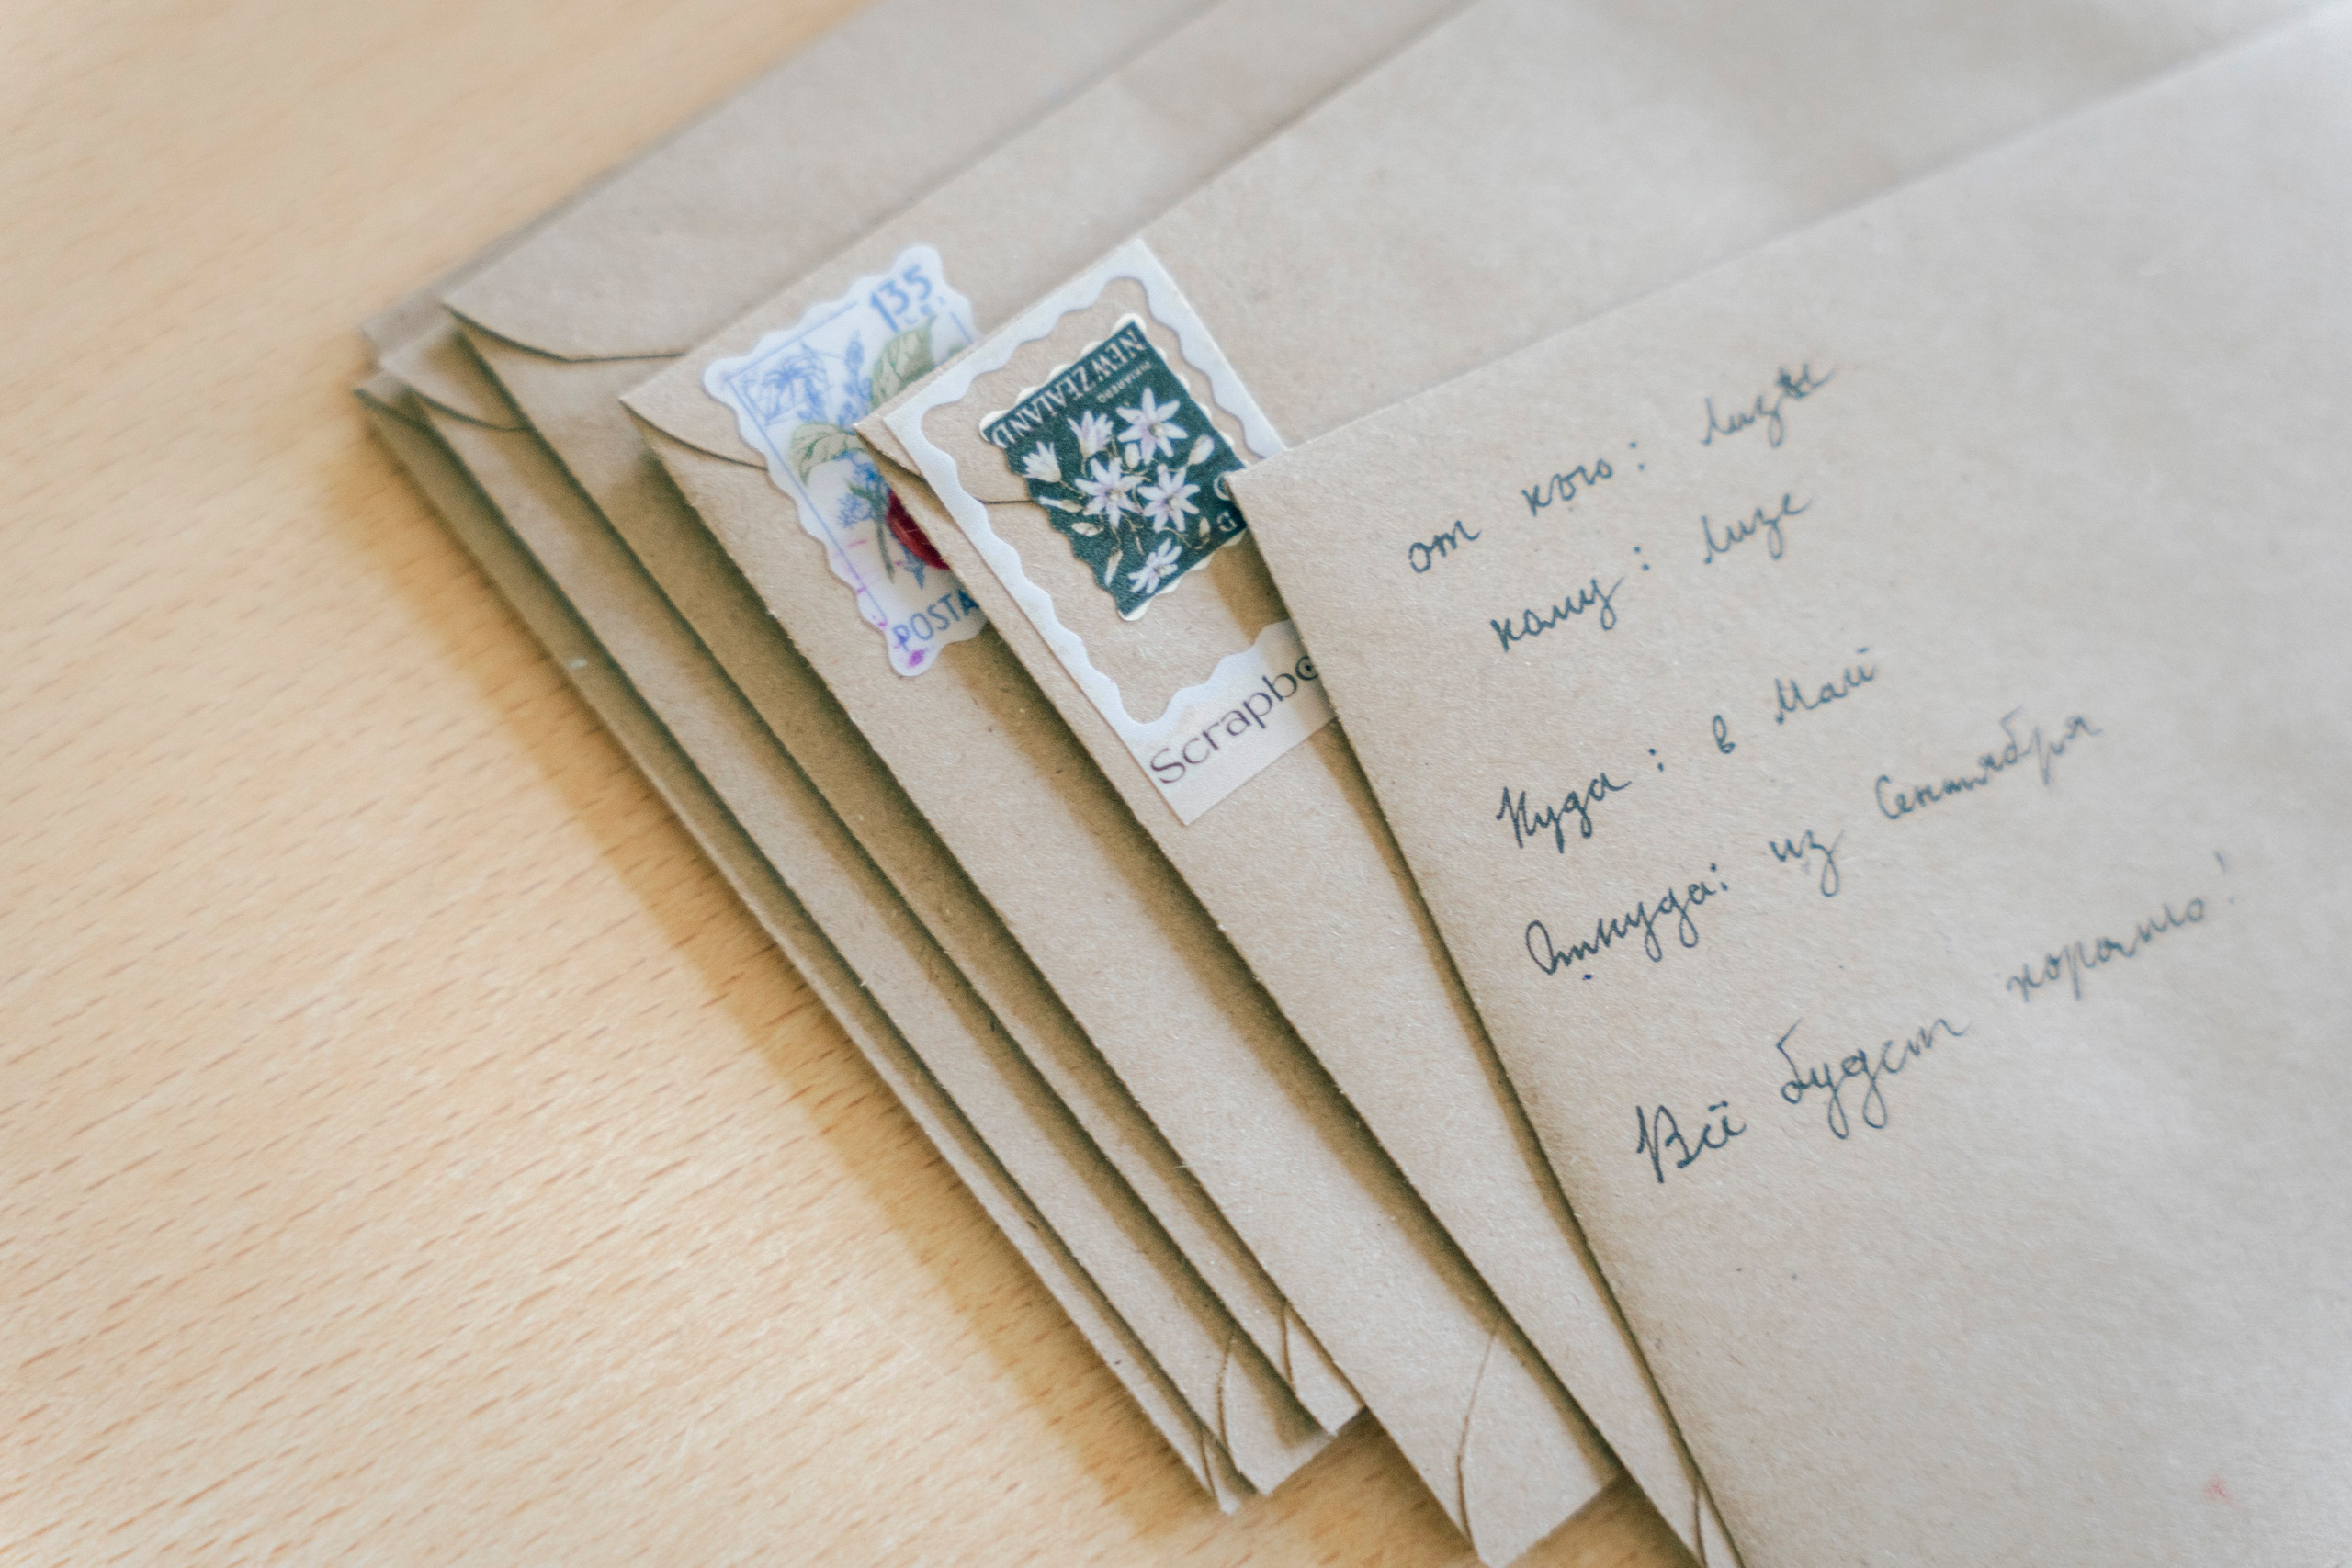 135
POSTA
NEW ZEALAND
Scrapbo
от кого: Лизы
кому: Лизе
Куда: в Май
Откуда: из Сентября
Всё будет хорошо!